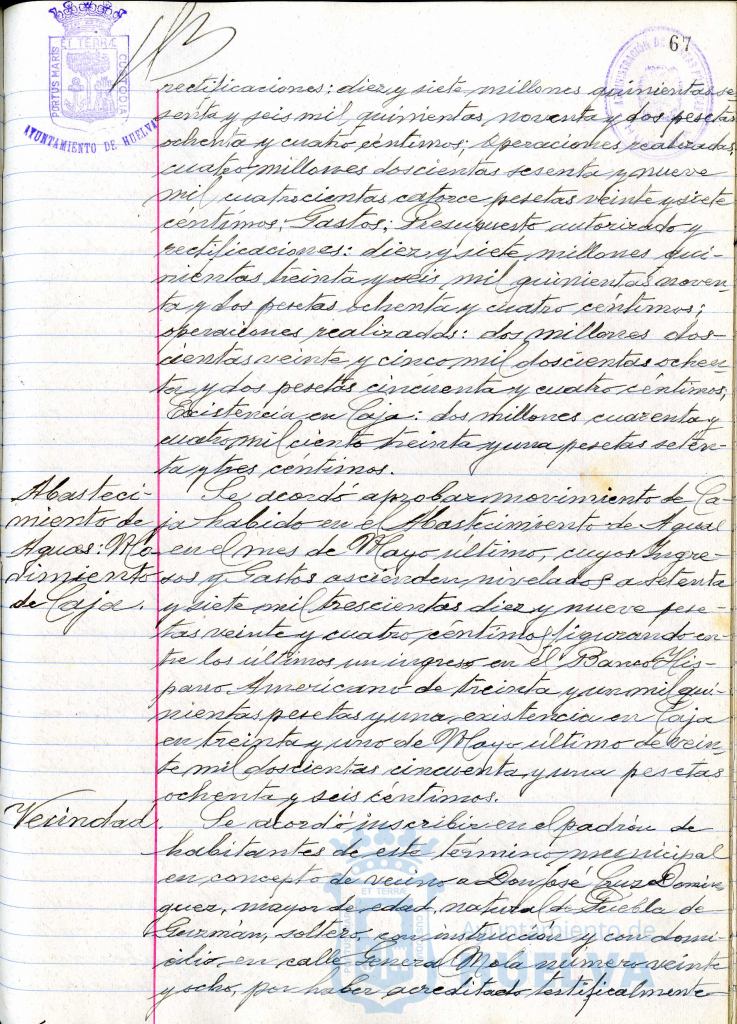 67
PORTUS MARIS ET TERRÆ CUSTODIA
AYUNTAMIENTO DE HUELVA
rectificaciones: diez y siete millones quinientas se-
senta y seis mil, quinientas noventa y dos pesetas
ochenta y cuatro céntimos; operaciones realizadas,
cuatro millones doscientas sesenta y nueve
mil cuatrocientas catorce pesetas veinte y siete
céntimos; Gastos; Presupuesto autorizado y
rectificaciones: diez y siete millones qui-
nientas treinta y seis mil quinientas noven-
ta y dos pesetas ochenta y cuatro céntimos;
operaciones realizadas: dos millones dos-
cientas veinte y cinco mil doscientas ochen-
ta y dos pesetas cincuenta y cuatro céntimos;
Existencia en Caja: dos millones cuarenta y
cuatro mil ciento treinta y una pesetas seten-
ta y tres céntimos.
Abasteci-
miento de
Aguas: Mo-
vimiento
de Caja.
Se acordó aprobar movimiento de Ca-
ja habido en el Abastecimiento de Aguas
en el mes de Mayo último, cuyos Ingre-
sos y Gastos ascienden nivelados a setenta
y siete mil trescientas diez y nueve pese-
tas veinte y cuatro céntimos figurando en-
tre los últimos un ingreso en el Banco His-
pano Americano de treinta y un mil qui-
nientas pesetas y una existencia en Caja
en treinta y uno de Mayo último de vein-
te mil doscientas cincuenta y una pesetas
ochenta y seis céntimos.
Vecindad.
Se acordó inscribir en el padrón de
habitantes de este término municipal
en concepto de vecino a Don José Cruz Domín-
guez, mayor de edad, natural de Puebla de
Guzmán, soltero, con instrucción y con domi-
cilio en calle General Mola número veinte
y ocho, por haber acreditado testificalmente
Ayuntamiento de
HUELVA